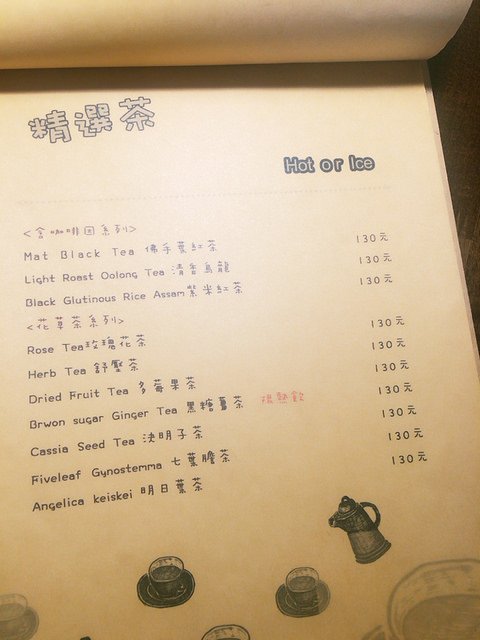 精選茶
Hot or Ice
<含咖啡因系列>
Mat Black Tea 佛手葉紅茶 130元
Light Roast Oolong Tea 清香烏龍 130元
Black Glutinous Rice Assam 紫米紅茶 130元
<花草茶系列>
Rose Tea 玫瑰花茶 130元
Herb Tea 舒壓茶 130元
Dried Fruit Tea 多莓果茶 130元
Brwon sugar Ginger Tea 黑糖薑茶 限熱飲 130元
Cassia Seed Tea 決明子茶 130元
Fiveleaf Gynostemma 七葉膽茶 130元
Angelica keiskei 明日葉茶 130元